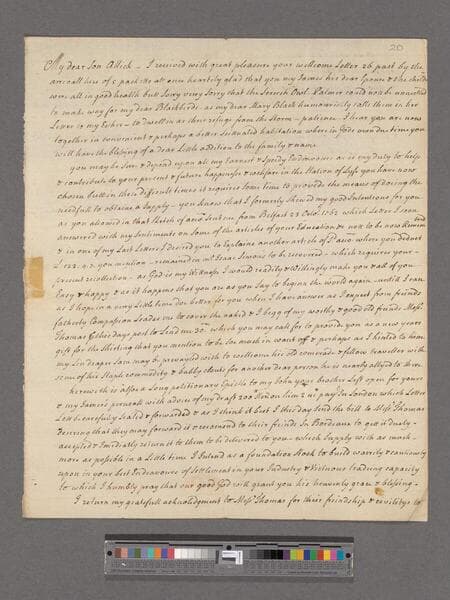 20
My dear Son Alleck – I received with great pleasure your wellcome Letter 26 past by the
arrivall here of 5 packetts at once heartily glad that you my James his dear Spouse & the childn
were all in good health but Sorry very Sorry that the Screech Owl Palmer could not be unnested
to make way for my dear Blackbirds as my dear Mary Black humourously calls them in her
Letter to my Esther – to dwell in as their refuge from the Storm – patience – I hear you are now
together in convenient & perhaps a better scituated habitation where in Gods own due time you
will have the blessing of a dear Little addition to the family & name
You may be Sure & depend upon all my Earnest & Speedy Endeavours as is my duty to help
& contribute to your present & future happiness & wellfare in the Station of Lyfe you have now
chosen but in these difficult times it requires some time to provide the means of doeing the
needfull to obtaine a Supply – you know that I formerly shewd my good Intentions for you
as you allowed in that Sketch of acct sent me from Belfast 23 Octor 1762 which Letter I soon
answered with my Sentiments on Some of the articles of your Education &c not to be now Rememd
& in one of my Last Letters I desired you to Explaine another article of Sd acco where you debuet
£ 122. 4. 2 you mention – remained in mr Isaac Simons to be recovered – which requires your
present recollection – as God is my Wittness I would readily & willingly make you & all of you
Easy & happy & as it happens that you are as you Say to begin the world again – untill I can
as I hope in a very Little time doe better for you when I have answer as I expect from friends
fatherly Compassion Leades me to cover the naked & I begg of my worthy & good old friends Messrs
Thomas by this days post to Lend me 30 which you may call for to provide you as a new years
gift for the Shirting that you mention to be Soe much in want off & perhaps as I hinted to home
my Lindsayes Sam may be prevayled with to wellcome his old comerade & fellow traveller with
some of his Staple commodity & bably clouts for another dear person he is nearly allyed to there
herewith is allsoe a Long petitionary Epistle to my John your brother Left open for yours
& my James's peruseall with advice of my draft on him pay in London which Letter
Lett be carefully Sealed & forwarded & as I think it best I this day Send the bill to Messrs Thomas
desireing that they may forward it recommend to their friends In Bordeaux to get it duely
accepted & Imediatly return it to them to be delivered to you – which Supply with as much
more as possible in a Little time I Intend as a foundation Stock to build warrily & cautiously
upon in your best Endeavours of Settlement in your Industry & Virtuous trading capacity
to which I humbly pray that our good God will grant you his heavenly grace & blessing –
I return my gratefull acknowledgement to Messrs Thomas for their friendship & civilitys to